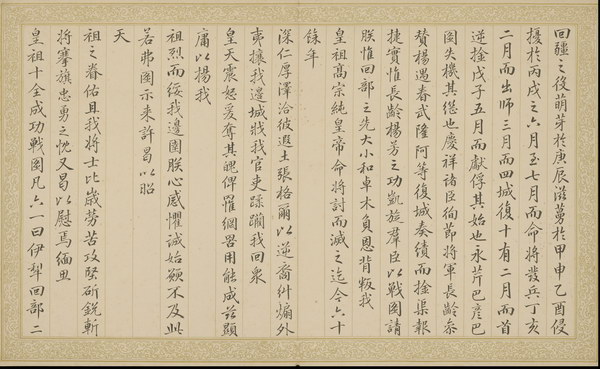 回疆之役萌芽於庚辰滋蔓於甲申乙酉侵
擾於丙戌之六月至七月而命將發兵丁亥
二月而出師三月而四城復十有二月而首
逆捡戊子五月而獻俘其始也永芹巴彦巴
圖失機其繼也慶祥諸臣徇節將軍長齡叅
贊楊遇春武隆阿等復城奏績而捡渠報
捷實惟長齡楊芳之功凱旋羣臣以戰圖請
朕惟回部之先大小和卓木負恩背叛我
皇祖高宗純皇帝命將討而滅之迄今六十
餘年
深仁厚澤洽彼遐土張格爾以逆裔糾煽外
夷攘我邊城戕我官吏蹂躪我回衆
皇天震怒爰奪其魄俾罹網罟用能咸茲顯
庸以揚我
祖烈而綏我邊圉朕心感懼誠始願不及此
若弗圖示来許曷以昭
天
祖之眷佑且我將士比歲勞苦攻堅斫銳斬
將搴旗忠勇之忱又曷以慰焉緬思
皇祖十全成功戰圖凡六一曰伊犁回部二